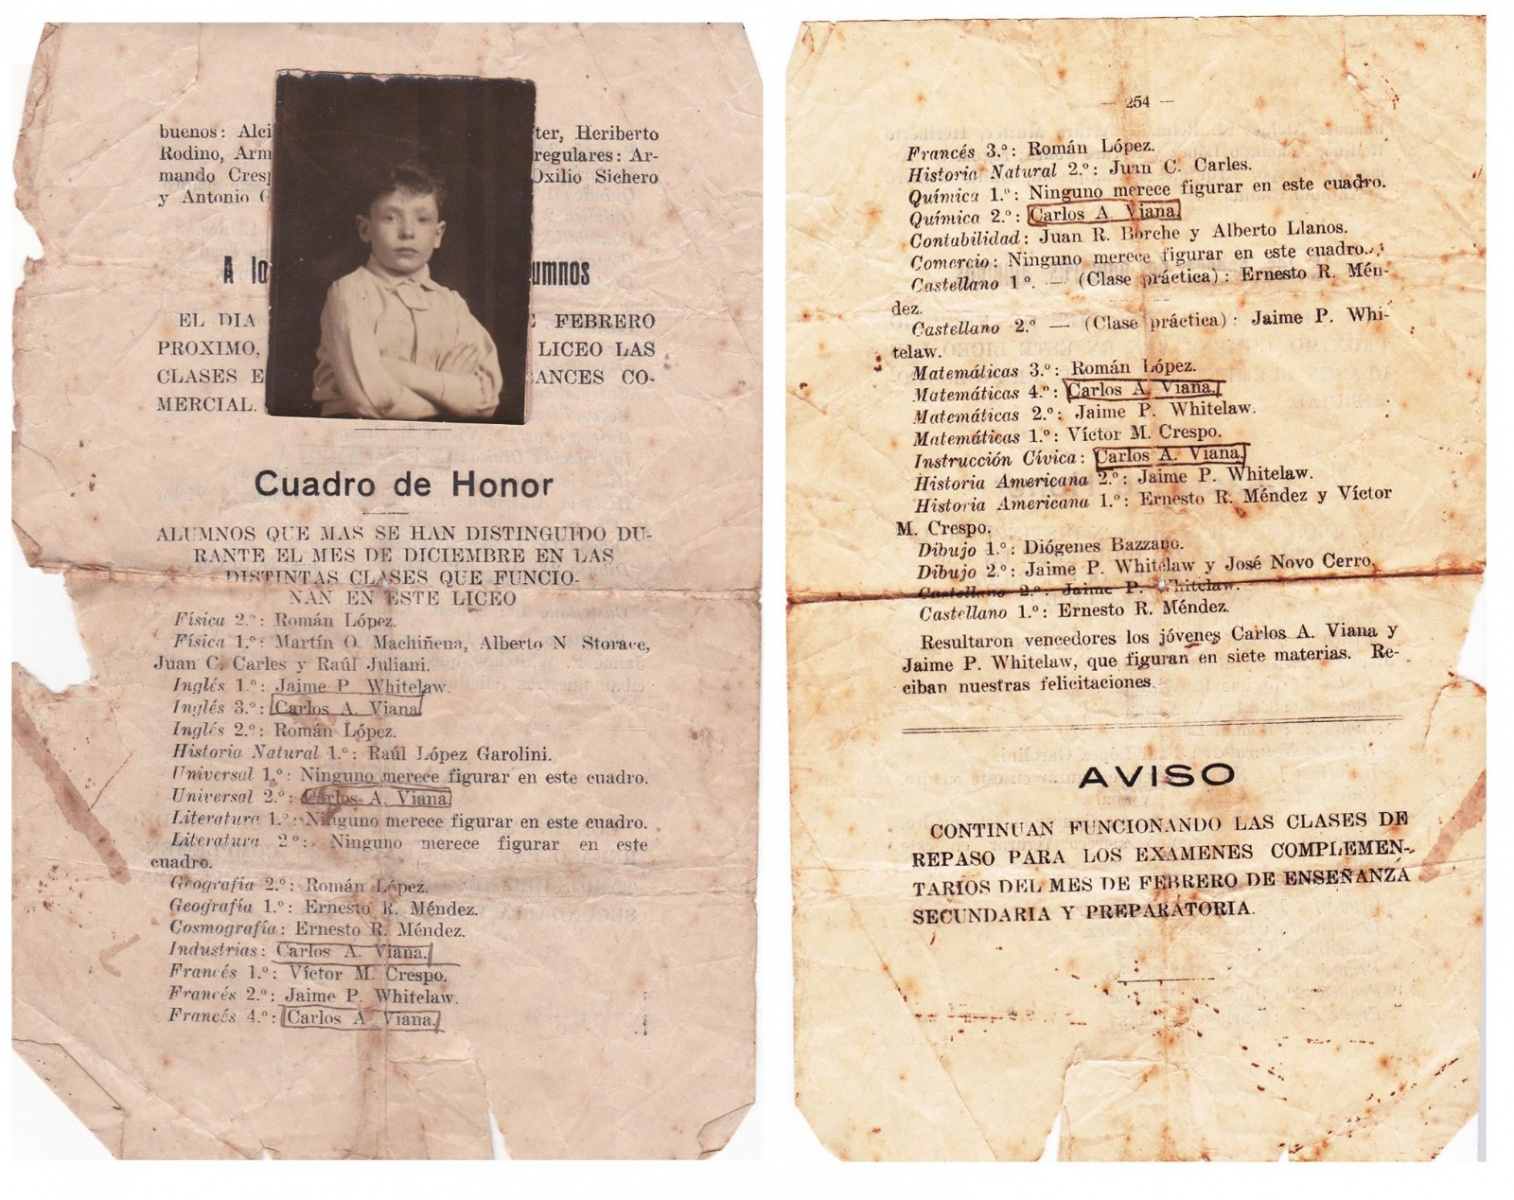 buenos: Alci ter, Heriberto
Rodino, Arm regulares: Ar-
mando Cresp Oxilio Sichero
y Antonio G
A lo umnos
EL DIA FEBRERO
PROXIMO, LICEO LAS
CLASES E ANCES CO-
MERCIAL.
Cuadro de Honor
ALUMNOS QUE MAS SE HAN DISTINGUIDO DU-
RANTE EL MES DE DICIEMBRE EN LAS
DISTINTAS CLASES QUE FUNCIO-
NAN EN ESTE LICEO
Física 2.º: Román López.
Física 1.º: Martín O. Machiñena, Alberto N Storace,
Juan C. Carles y Raúl Juliani.
Inglés 1.º: Jaime P. Whitelaw.
Inglés 3.º: Carlos A. Viana
Inglés 2.º: Román López.
Historia Natural 1.º: Raúl López Garolini.
Universal 1.º: Ninguno merece figurar en este cuadro.
Universal 2.º: Carlos A. Viana
Literatura 1.º: Ninguno merece figurar en este cuadro.
Literatura 2.º: Ninguno merece figurar en este
cuadro.
Geografía 2.º: Román López.
Geografía 1.º: Ernesto R. Méndez.
Cosmografía: Ernesto R. Méndez.
Industrias: Carlos A. Viana.
Francés 1.º: Víctor M. Crespo.
Francés 2.º: Jaime P. Whitelaw.
Francés 4.º: Carlos A Viana.
— 254 —
Francés 3.º: Román López.
Historia Natural 2.º: Juan C. Carles.
Química 1.º: Ninguno merece figurar en este cuadro.
Química 2.º: Carlos A. Viana.
Contabilidad: Juan R. Borche y Alberto Llanos.
Comercio: Ninguno merece figurar en este cuadro.
Castellano 1º. — (Clase práctica): Ernesto R. Mén-
dez.
Castellano 2.º — (Clase práctica): Jaime P. Whi-
telaw.
Matemáticas 3.º: Román López.
Matemáticas 4.º: Carlos A. Viana.
Matemáticas 2.º: Jaime P. Whitelaw.
Matemáticas 1.º: Víctor M. Crespo.
Instrucción Cívica: Carlos A. Viana.
Historia Americana 2.º: Jaime P. Whitelaw.
Historia Americana 1.º: Ernesto R. Méndez y Víctor
M. Crespo.
Dibujo 1.º: Diógenes Bazzano.
Dibujo 2.º: Jaime P. Whitelaw y José Novo Cerro.
Castellano 2.º: Jaime P. Whitelaw.
Castellano 1.º: Ernesto R. Méndez.
Resultaron vencedores los jóvenes Carlos A. Viana y
Jaime P. Whitelaw, que figuran en siete materias. Re-
ciban nuestras felicitaciones.
AVISO
CONTINUAN FUNCIONANDO LAS CLASES DE
REPASO PARA LOS EXAMENES COMPLEMEN-
TARIOS DEL MES DE FEBRERO DE ENSEÑANZA
SECUNDARIA Y PREPARATORIA.